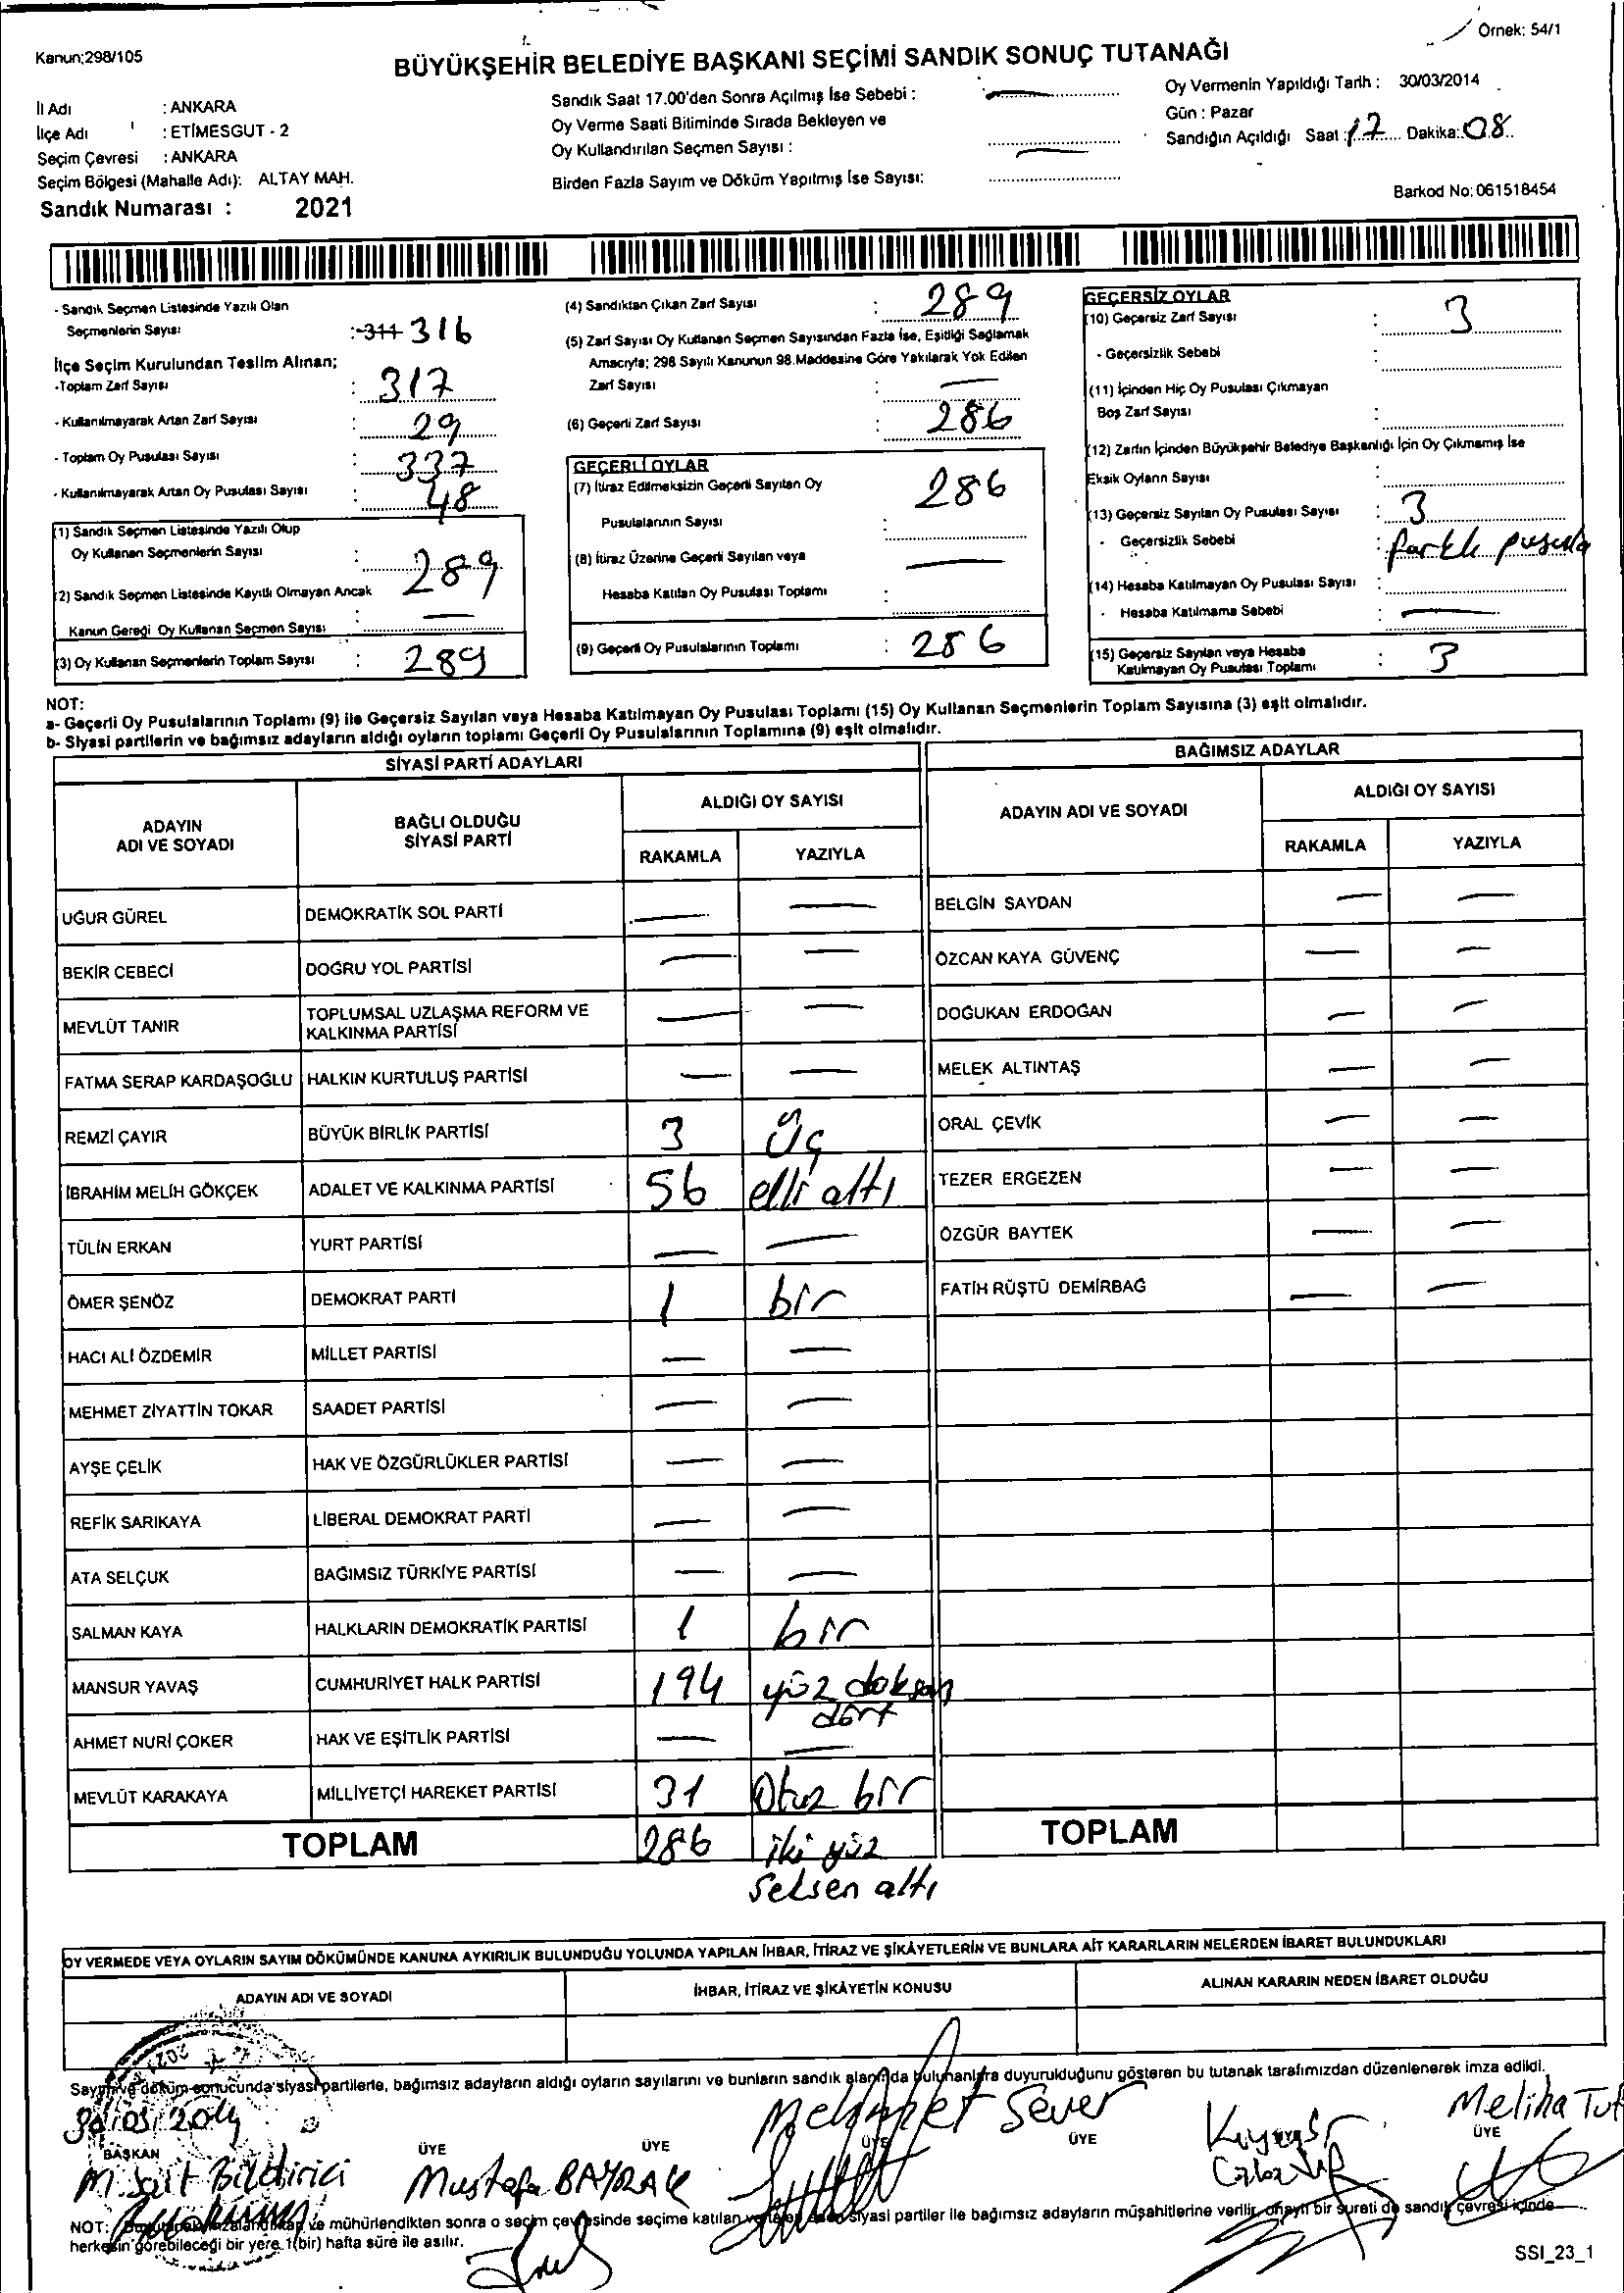 Örnek: 54/1
Kanun:298/105
BÜYÜKŞEHİR BELEDİYE BAŞKANI SEÇİMİ SANDIK SONUÇ TUTANAĞI
İl Adı : ANKARA
İlçe Adı : ETİMESGUT - 2
Seçim Çevresi : ANKARA
Seçim Bölgesi (Mahalle Adı): ALTAY MAH.
Sandık Numarası : 2021
Sandık Saat 17.00'den Sonra Açılmış İse Sebebi :
Oy Verme Saati Bitiminde Sırada Bekleyen ve
Oy Kullandırılan Seçmen Sayısı :
Birden Fazla Sayım ve Döküm Yapılmış İse Sayısı:
Oy Vermenin Yapıldığı Tarih : 30/03/2014
Gün : Pazar
Sandığın Açıldığı Saat : 17 Dakika: 08
Barkod No: 061518454
- Sandık Seçmen Listesinde Yazılı Olan
Seçmenlerin Sayısı : 311 316
İlçe Seçim Kurulundan Teslim Alınan;
-Toplam Zarf Sayısı : 317
- Kullanılmayarak Artan Zarf Sayısı : 29
- Toplam Oy Pusulası Sayısı : 337
- Kullanılmayarak Artan Oy Pusulası Sayısı : 48
(1) Sandık Seçmen Listesinde Yazılı Olup
Oy Kullanan Seçmenlerin Sayısı : 289
(2) Sandık Seçmen Listesinde Kayıtlı Olmayan Ancak
Kanun Gereği Oy Kullanan Seçmen Sayısı : —
(3) Oy Kullanan Seçmenlerin Toplam Sayısı : 289
(4) Sandıktan Çıkan Zarf Sayısı : 289
(5) Zarf Sayısı Oy Kullanan Seçmen Sayısından Fazla İse, Eşitliği Sağlamak
Amacıyla; 298 Sayılı Kanunun 98.Maddesine Göre Yakılarak Yok Edilen
Zarf Sayısı : —
(6) Geçerli Zarf Sayısı : 286
GEÇERLİ OYLAR
(7) İtiraz Edilmeksizin Geçerli Sayılan Oy
Pusulalarının Sayısı : 286
(8) İtiraz Üzerine Geçerli Sayılan veya
Hesaba Katılan Oy Pusulası Toplamı : —
(9) Geçerli Oy Pusulalarının Toplamı : 286
GEÇERSİZ OYLAR
(10) Geçersiz Zarf Sayısı : 3
- Geçersizlik Sebebi :
(11) İçinden Hiç Oy Pusulası Çıkmayan
Boş Zarf Sayısı :
(12) Zarfın İçinden Büyükşehir Belediye Başkanlığı İçin Oy Çıkmamış İse
Eksik Oyların Sayısı :
(13) Geçersiz Sayılan Oy Pusulası Sayısı : 3
- Geçersizlik Sebebi : farklı pusula
(14) Hesaba Katılmayan Oy Pusulası Sayısı :
- Hesaba Katılmama Sebebi : —
(15) Geçersiz Sayılan veya Hesaba
Katılmayan Oy Pusulası Toplamı : 3
NOT:
a- Geçerli Oy Pusulalarının Toplamı (9) ile Geçersiz Sayılan veya Hesaba Katılmayan Oy Pusulası Toplamı (15) Oy Kullanan Seçmenlerin Toplam Sayısına (3) eşit olmalıdır.
b- Siyasi partilerin ve bağımsız adayların aldığı oyların toplamı Geçerli Oy Pusulalarının Toplamına (9) eşit olmalıdır.
SİYASİ PARTİ ADAYLARI
ADAYIN ADI VE SOYADI BAĞLI OLDUĞU SİYASİ PARTİ ALDIĞI OY SAYISI
RAKAMLA YAZIYLA
UĞUR GÜREL DEMOKRATİK SOL PARTİ — —
BEKİR CEBECİ DOĞRU YOL PARTİSİ — —
MEVLÜT TANIR TOPLUMSAL UZLAŞMA REFORM VE KALKINMA PARTİSİ — —
FATMA SERAP KARDAŞOĞLU HALKIN KURTULUŞ PARTİSİ — —
REMZİ ÇAYIR BÜYÜK BİRLİK PARTİSİ 3 Üç
İBRAHİM MELİH GÖKÇEK ADALET VE KALKINMA PARTİSİ 56 elli altı
TÜLİN ERKAN YURT PARTİSİ — —
ÖMER ŞENÖZ DEMOKRAT PARTİ 1 bir
HACI ALİ ÖZDEMİR MİLLET PARTİSİ — —
MEHMET ZİYATTİN TOKAR SAADET PARTİSİ — —
AYŞE ÇELİK HAK VE ÖZGÜRLÜKLER PARTİSİ — —
REFİK SARIKAYA LİBERAL DEMOKRAT PARTİ — —
ATA SELÇUK BAĞIMSIZ TÜRKİYE PARTİSİ — —
SALMAN KAYA HALKLARIN DEMOKRATİK PARTİSİ 1 bir
MANSUR YAVAŞ CUMHURİYET HALK PARTİSİ 194 yüz doksan dört
AHMET NURİ ÇOKER HAK VE EŞİTLİK PARTİSİ — —
MEVLÜT KARAKAYA MİLLİYETÇİ HAREKET PARTİSİ 31 Otuz bir
TOPLAM 286 iki yüz
seksen altı
BAĞIMSIZ ADAYLAR
ADAYIN ADI VE SOYADI ALDIĞI OY SAYISI
RAKAMLA YAZIYLA
BELGİN SAYDAN — —
ÖZCAN KAYA GÜVENÇ — —
DOĞUKAN ERDOĞAN — —
MELEK ALTINTAŞ — —
ORAL ÇEVİK — —
TEZER ERGEZEN — —
ÖZGÜR BAYTEK — —
FATİH RÜŞTÜ DEMİRBAĞ — —
TOPLAM
OY VERMEDE VEYA OYLARIN SAYIM DÖKÜMÜNDE KANUNA AYKIRILIK BULUNDUĞU YOLUNDA YAPILAN İHBAR, İTİRAZ VE ŞİKÂYETLERİN VE BUNLARA AİT KARARLARIN NELERDEN İBARET BULUNDUKLARI
ADAYIN ADI VE SOYADI İHBAR, İTİRAZ VE ŞİKÂYETİN KONUSU ALINAN KARARIN NEDEN İBARET OLDUĞU
Sayım ve döküm sonucunda siyasi partilerle, bağımsız adayların aldığı oyların sayılarını ve bunların sandık alanında bulunanlara duyurulduğunu gösteren bu tutanak tarafımızdan düzenlenerek imza edildi.
30/03/2014
BAŞKAN ÜYE ÜYE ÜYE ÜYE ÜYE
M. Sait Bildirici Mustafa BAYRAK Mehmet Sever Meliha
NOT: Bu tutanak imzalandıktan ve mühürlendikten sonra o seçim çevresinde seçime katılan siyasi partiler ile bağımsız adayların müşahitlerine verilir, onaylı bir sureti de sandık çevresi içinde
herkesin görebileceği bir yere 1(bir) hafta süre ile asılır.
SSI_23_1